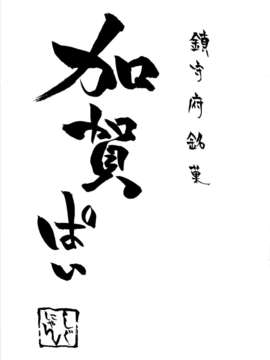 鎮守府銘菓
加賀ぱい
にゃん